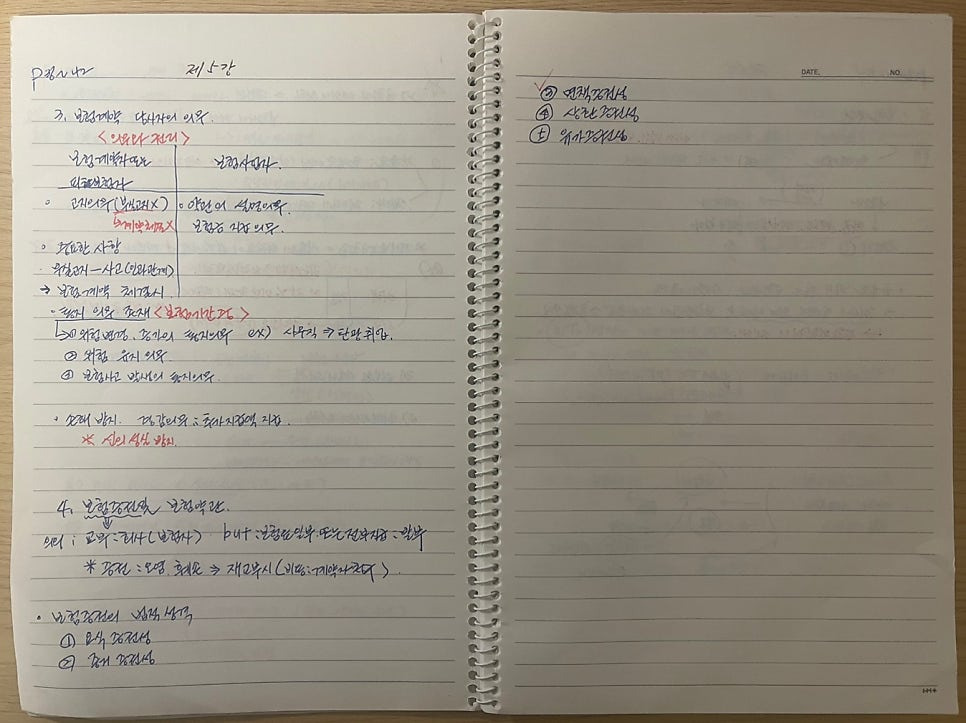 제 5 강
3. 보험계약 당사자의 의무.
<의무와 권리>
보험계약자 또는 보험사업자.
피보험자
· 고지의무 (부실고지X) · 약관의 설명의무.
↳계약해지X 보험금 지급 의무.
· 중요한 사항
· 부실고지 - 사고 (인과관계)
→ 보험계약 체결시.
· 통지 의무 존재 <보험기간 중>
↳① 위험변경, 증가의 통지의무 ex) 사무직 ⇒ 현관 취급.
② 위험 유지 의무.
③ 보험사고 발생의 통지의무.
· 손해 방지. 경감의무 : 추가지급액 지급.
* 신의성실 방지.
4. 보험증권및 보험약관.
의의 : 교부 : 회사 (보험자) but : 보험료 일부 또는 전부지급 : 교부
* 증권 : 오염, 훼손 ⇒ 재교부시 (비용 : 계약자부담).
· 보험증권의 법적 성격
① 요식 증권성
② 증거 증권성
DATE. NO.
③ 면책증권성
④ 상환 증권성
⑤ 유가증권성.